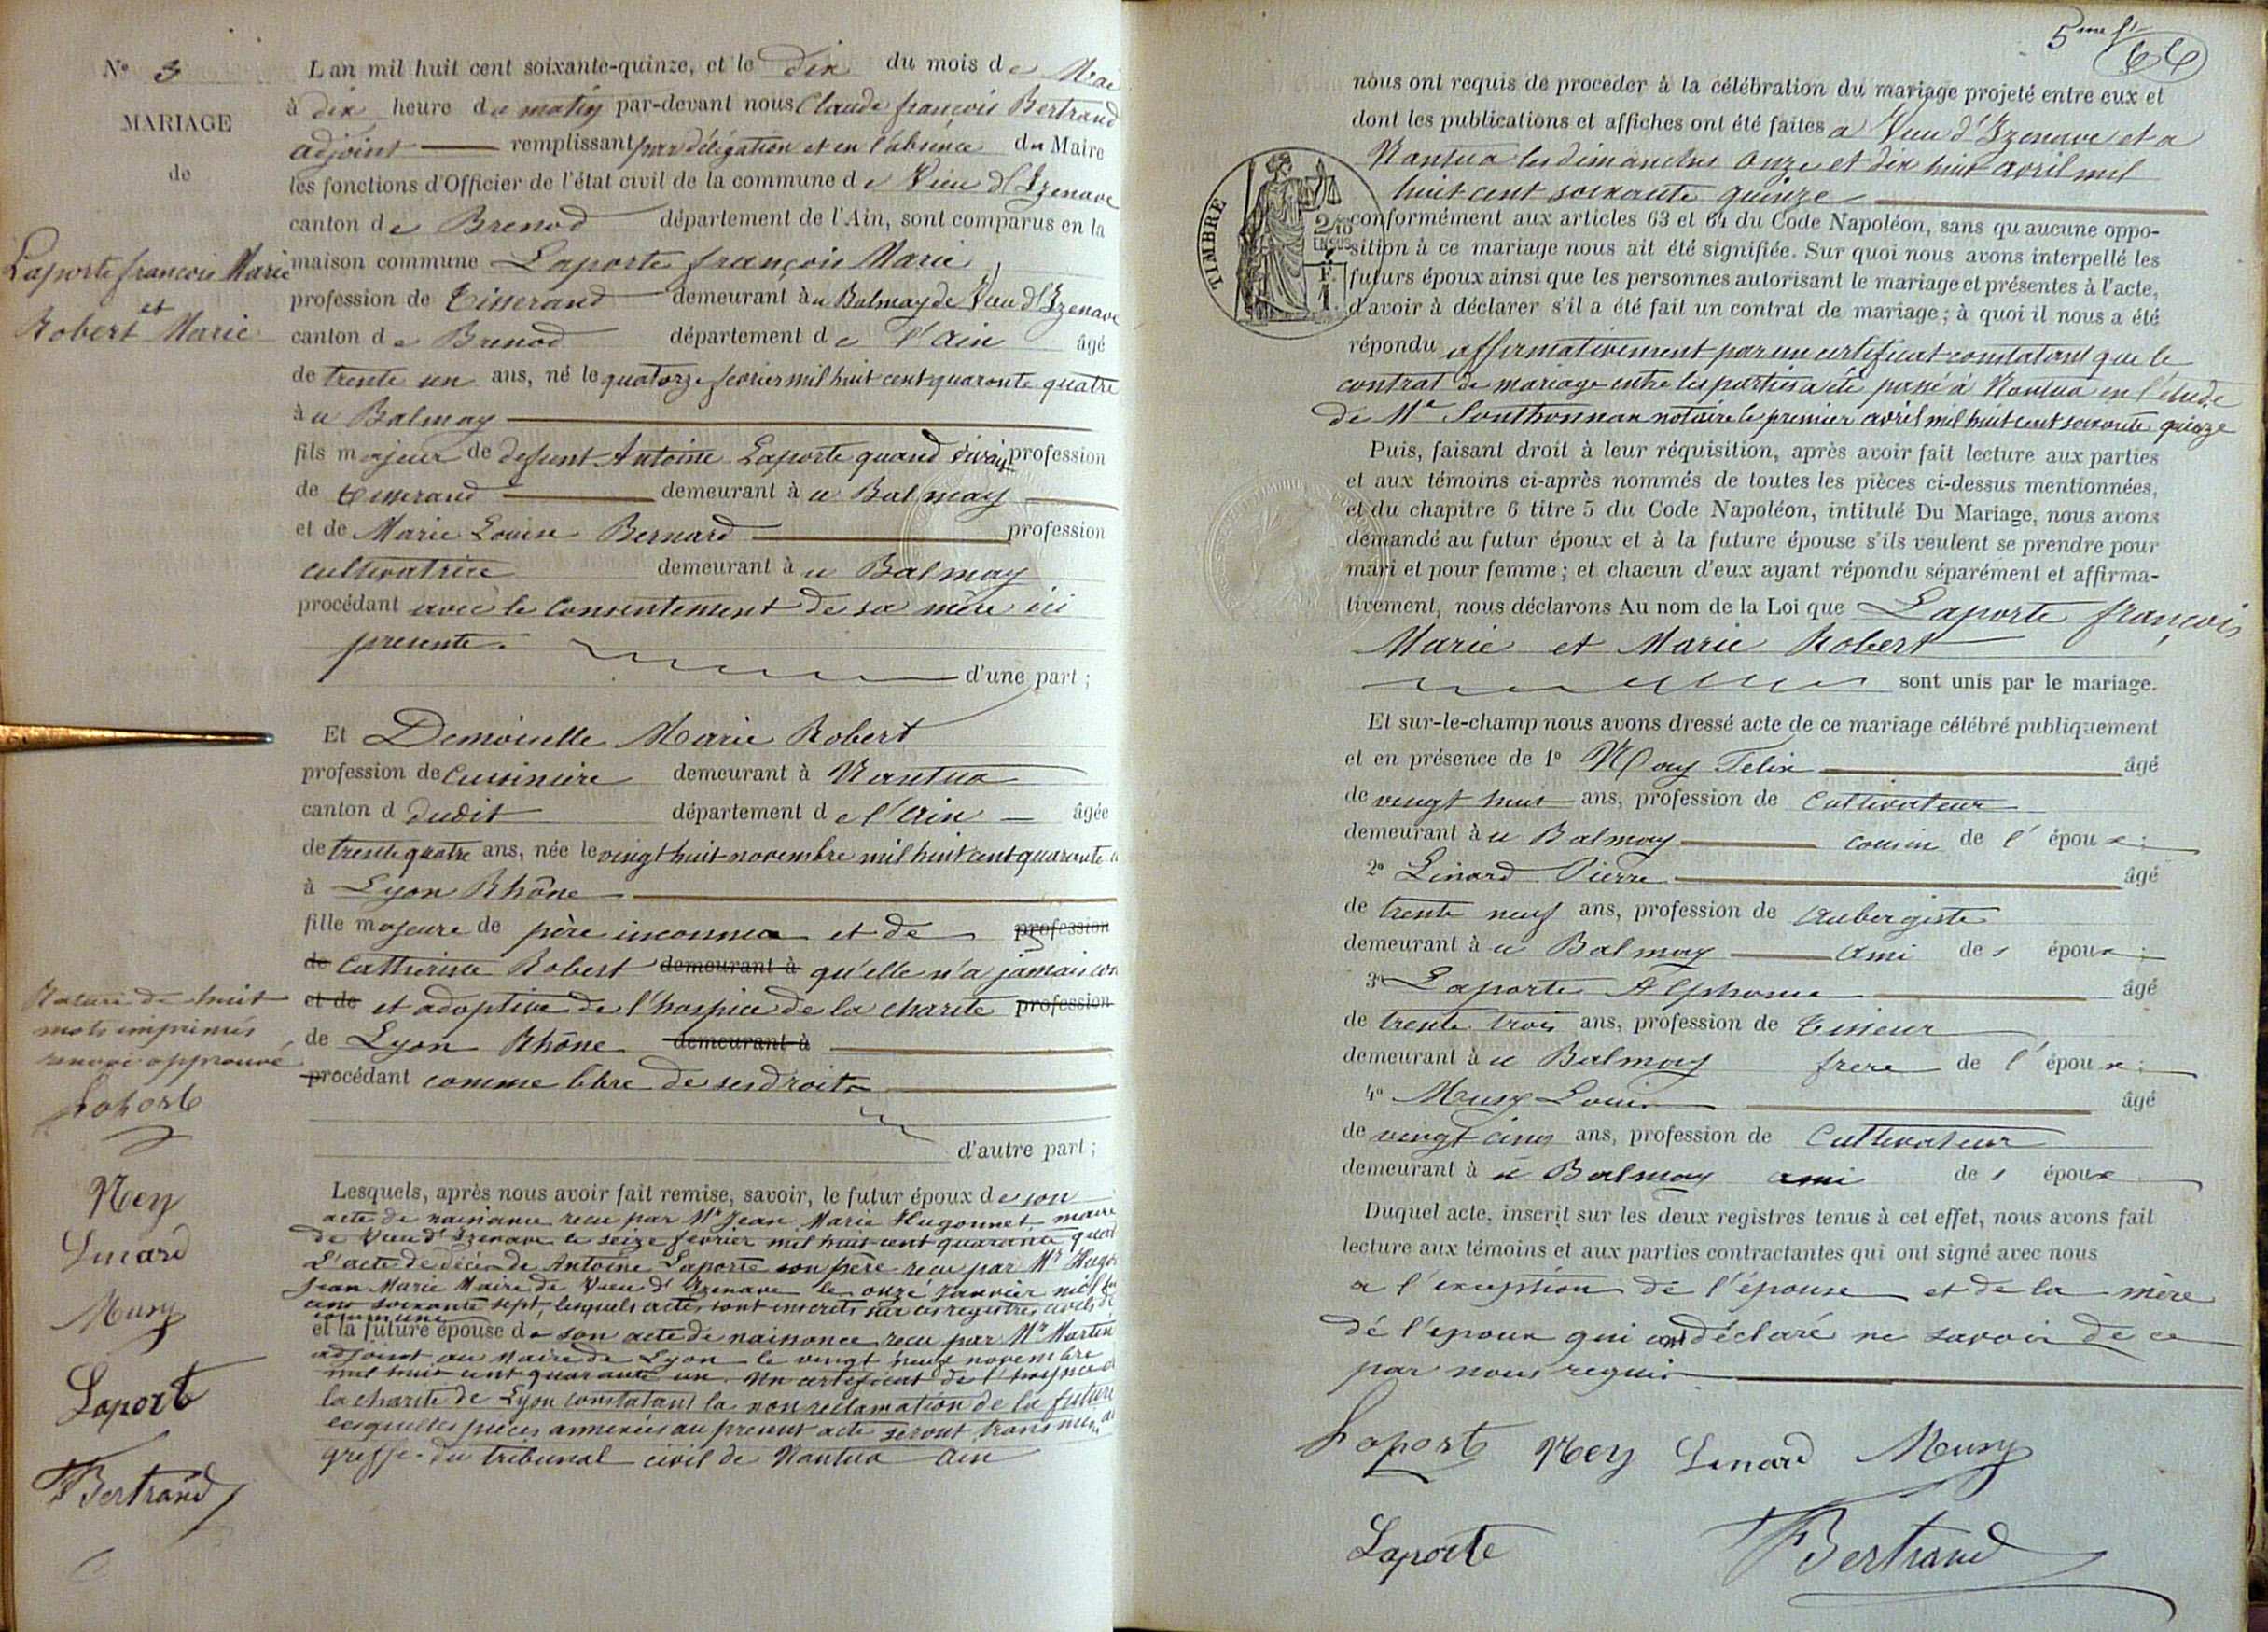 N° 3
MARIAGE
de
Laporte françois Marie
et
Robert Marie
L'an mil huit cent soixante-quinze, et le dix du mois de Mai
à dix heure du matin par-devant nous Claude françois Bertrand
adjoint remplissant par délégation et en l'absence du Maire
les fonctions d'Officier de l'état civil de la commune de Vieu d'Izenave
canton de Brenod département de l'Ain, sont comparus en la
maison commune Laporte françois Marie
profession de Tisserand demeurant à u Balmay de Vieu d'Izenave
canton de Brenod département de l'Ain âgé
de trente un ans, né le quatorze fevrier mil huit cent quarante quatre
à u Balmay
fils majeur de defunt Antoine Laporte quand vivait profession
de tisserand demeurant à u Balmay
et de Marie Louise Bernard profession
cultivatrice demeurant à u Balmay
procédant avec le consentement de sa mère ici
presente.
d'une part ;
Et Demoiselle Marie Robert
profession de Cuisinière demeurant à Nantua
canton d dudit département de l'Ain âgée
de trente quatre ans, née le vingt huit novembre mil huit cent quarante
à Lyon Rhône
fille majeure de père inconnu et de profession
de Catherine Robert demeurant à qu'elle n'a jamais
et de et adoptive de l'hospice de la charité profession
de Lyon Rhône demeurant à
procédant comme libre de ses droits
d'autre part ;
Rature de huit
mots imprimés
renvoi approuvé
Laport
Ney
Linard
Musy
Laport
FBertrand
Lesquels, après nous avoir fait remise, savoir, le futur époux de son
acte de naissance recu par Mr Jean Marie Hugonnet maire
de Vieu d'Izenave le seize fevrier mil huit cent quarante
L'acte de décès de Antoine Laporte son père recu par Mr
Jean Marie Maire de Vieu d'Izenave le onze Janvier mil
cent soixante sept, lesquels actes sont inscrits sur les registres civils de
commune
et la future épouse de son acte de naissance recu par Mr Martin
adjoint au Maire de Lyon le vingt neuf novembre
mil huit cent quarante un. Un certificat de l'hospice
la charité de Lyon constatant la non reclamation de la future
lesquelles pièces annexées au present acte seront transmises
greffe du tribunal civil de Nantua Ain
5me ft
66
nous ont requis de procéder à la célébration du mariage projeté entre eux et
dont les publications et affiches ont été faites a Vieu d'Izenave et a
Nantua les dimanches onze et dix huit avril mil
huit cent soixante quinze
conformément aux articles 63 et 64 du Code Napoléon, sans qu'aucune oppo-
sition à ce mariage nous ait été signifiée. Sur quoi nous avons interpellé les
futurs époux ainsi que les personnes autorisant le mariage et présentes à l'acte,
d'avoir à déclarer s'il a été fait un contrat de mariage ; à quoi il nous a été
répondu affirmativement par un certificat constatant que le
contrat de mariage entre les parties a été passé à Nantua en l'étude
de Me Southonnax notaire le premier avril mil huit cent soixante quinze
TIMBRE
2/10
EN SUS
1 F.
Puis, faisant droit à leur réquisition, après avoir fait lecture aux parties
et aux témoins ci-après nommés de toutes les pièces ci-dessus mentionnées,
et du chapitre 6 titre 5 du Code Napoléon, intitulé Du Mariage, nous avons
demandé au futur époux et à la future épouse s'ils veulent se prendre pour
mari et pour femme ; et chacun d'eux ayant répondu séparément et affirma-
tivement, nous déclarons Au nom de la Loi que Laporte françois
Marie et Marie Robert
sont unis par le mariage.
Et sur-le-champ nous avons dressé acte de ce mariage célébré publiquement
et en présence de 1° Ney Felix âgé
de vingt huit ans, profession de Cultivateur
demeurant à u Balmay cousin de l'époux ;
2° Linard Pierre âgé
de trente neuf ans, profession de Aubergiste
demeurant à u Balmay ami des époux ;
3° Laporte Alphonse âgé
de trente trois ans, profession de tisseur
demeurant à u Balmay frere de l'époux ;
4° Musy Louis âgé
de vingt cinq ans, profession de Cultivateur
demeurant à u Balmay ami des époux
Duquel acte, inscrit sur les deux registres tenus à cet effet, nous avons fait
lecture aux témoins et aux parties contractantes qui ont signé avec nous
a l'exception de l'épouse et de la mère
de l'époux qui ont déclaré ne savoir de ce
par nous requis
Laport Ney Linard Musy
Laporte FBertrand